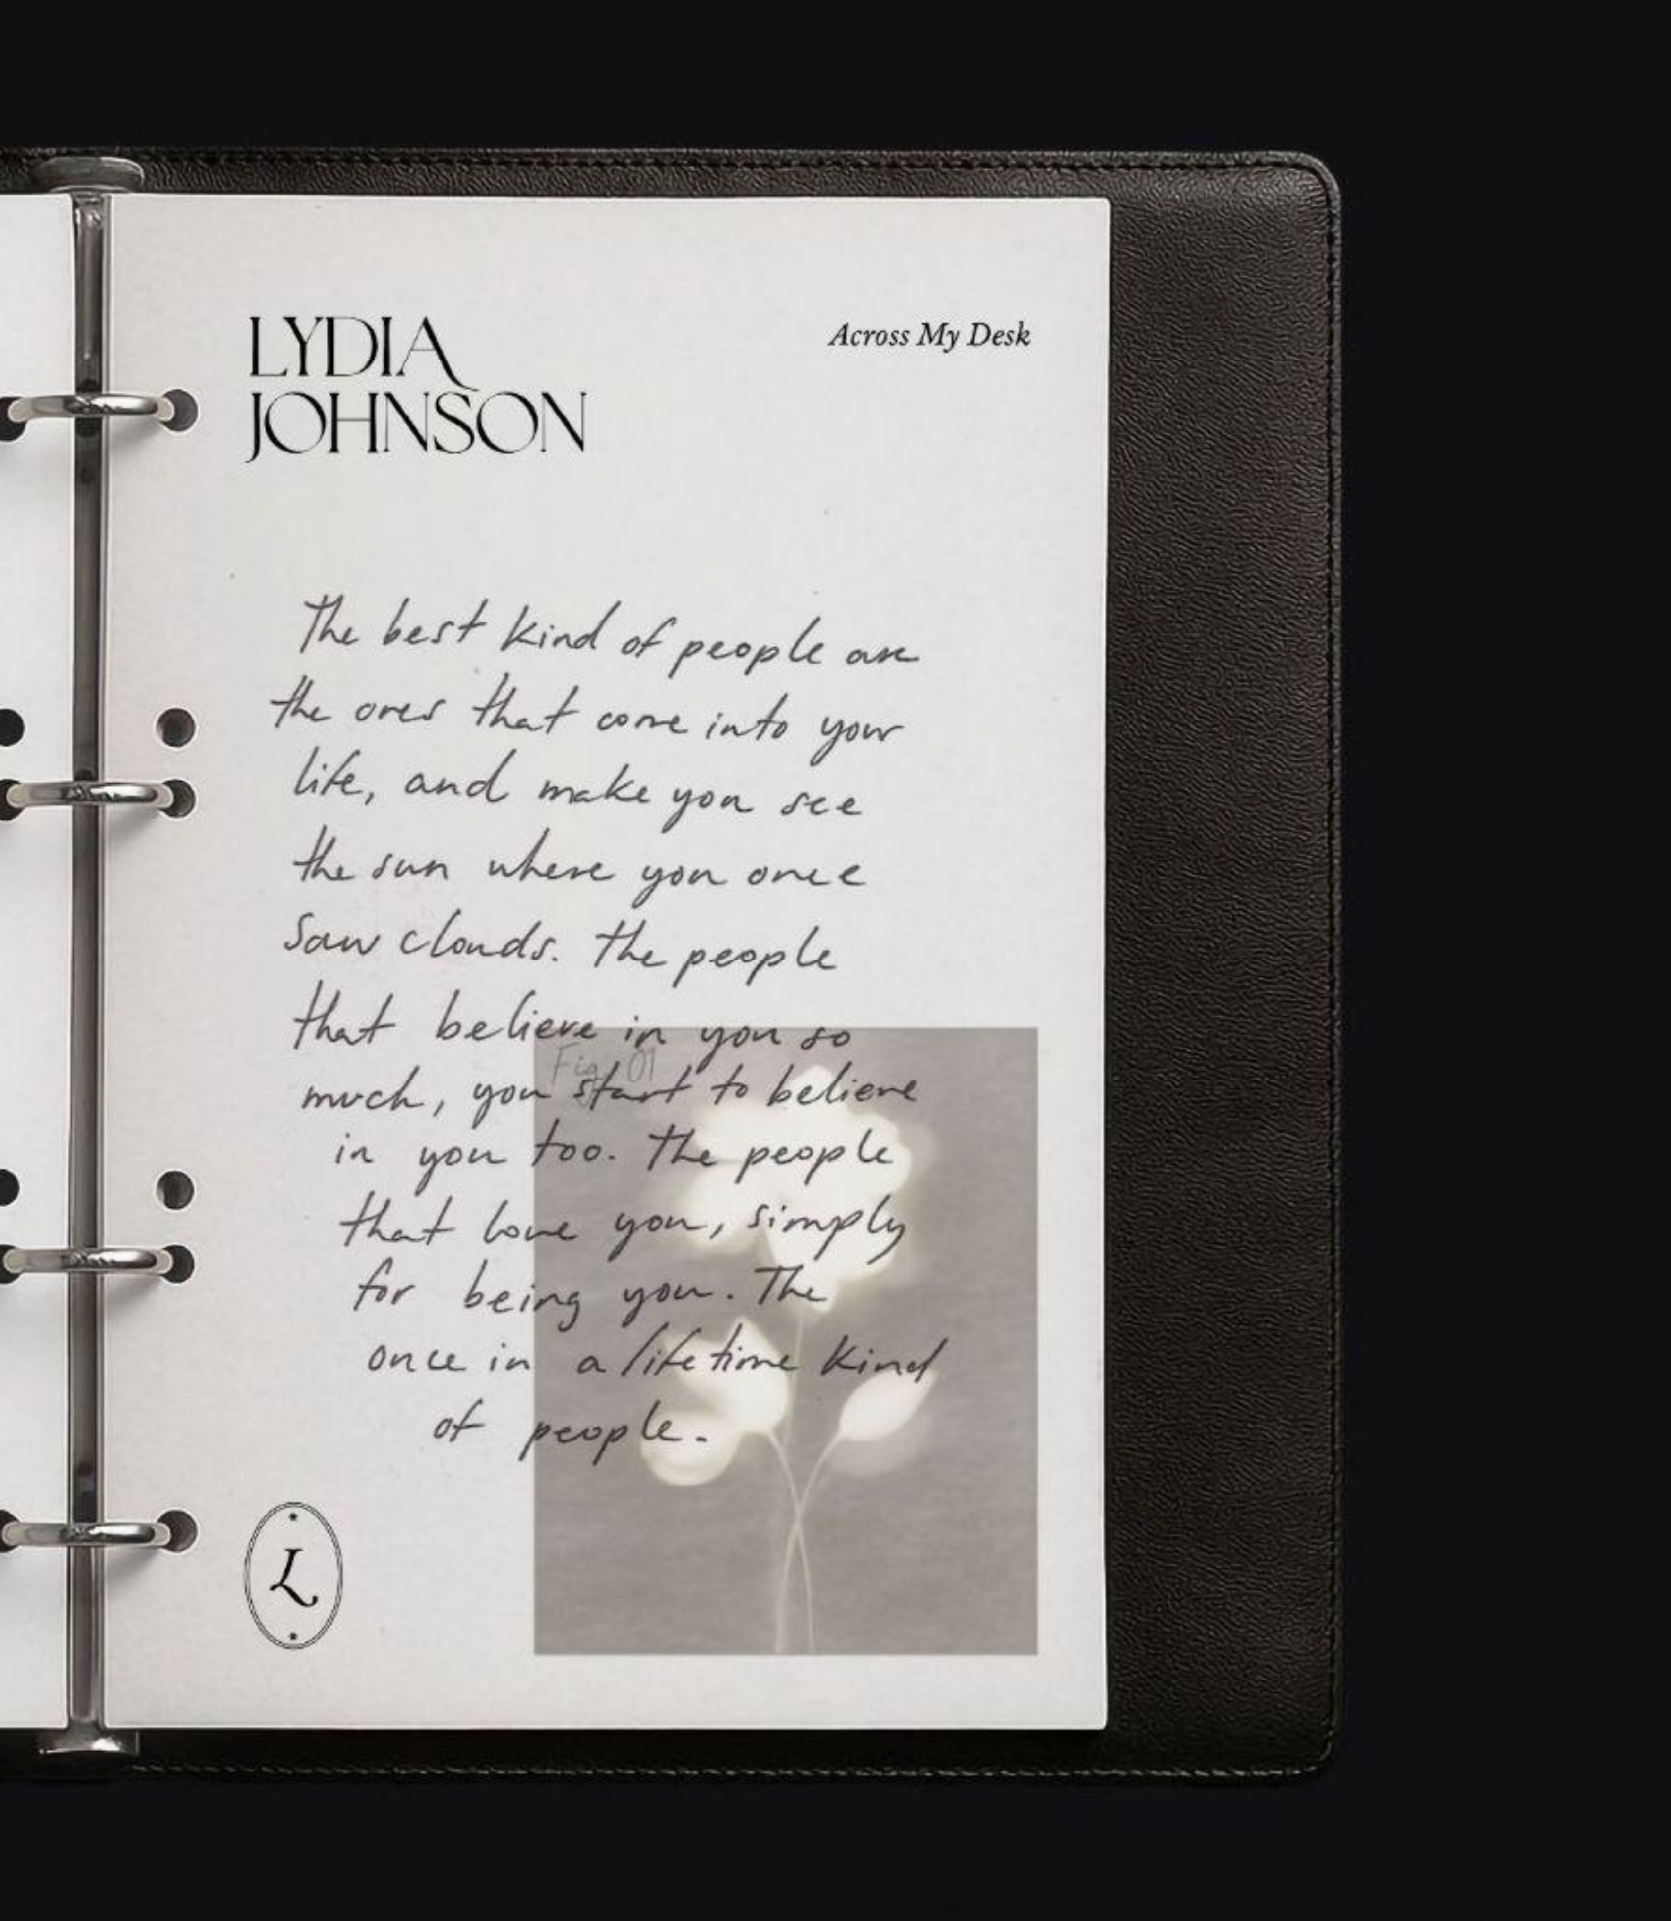 LYDIA
JOHNSON
Across My Desk
The best kind of people are
the ones that come into your
life, and make you see
the sun where you once
saw clouds. The people
that believe in you so
Fig. 01
much, you start to believe
in you too. The people
that love you, simply
for being you. The
once in a lifetime kind
of people.
L